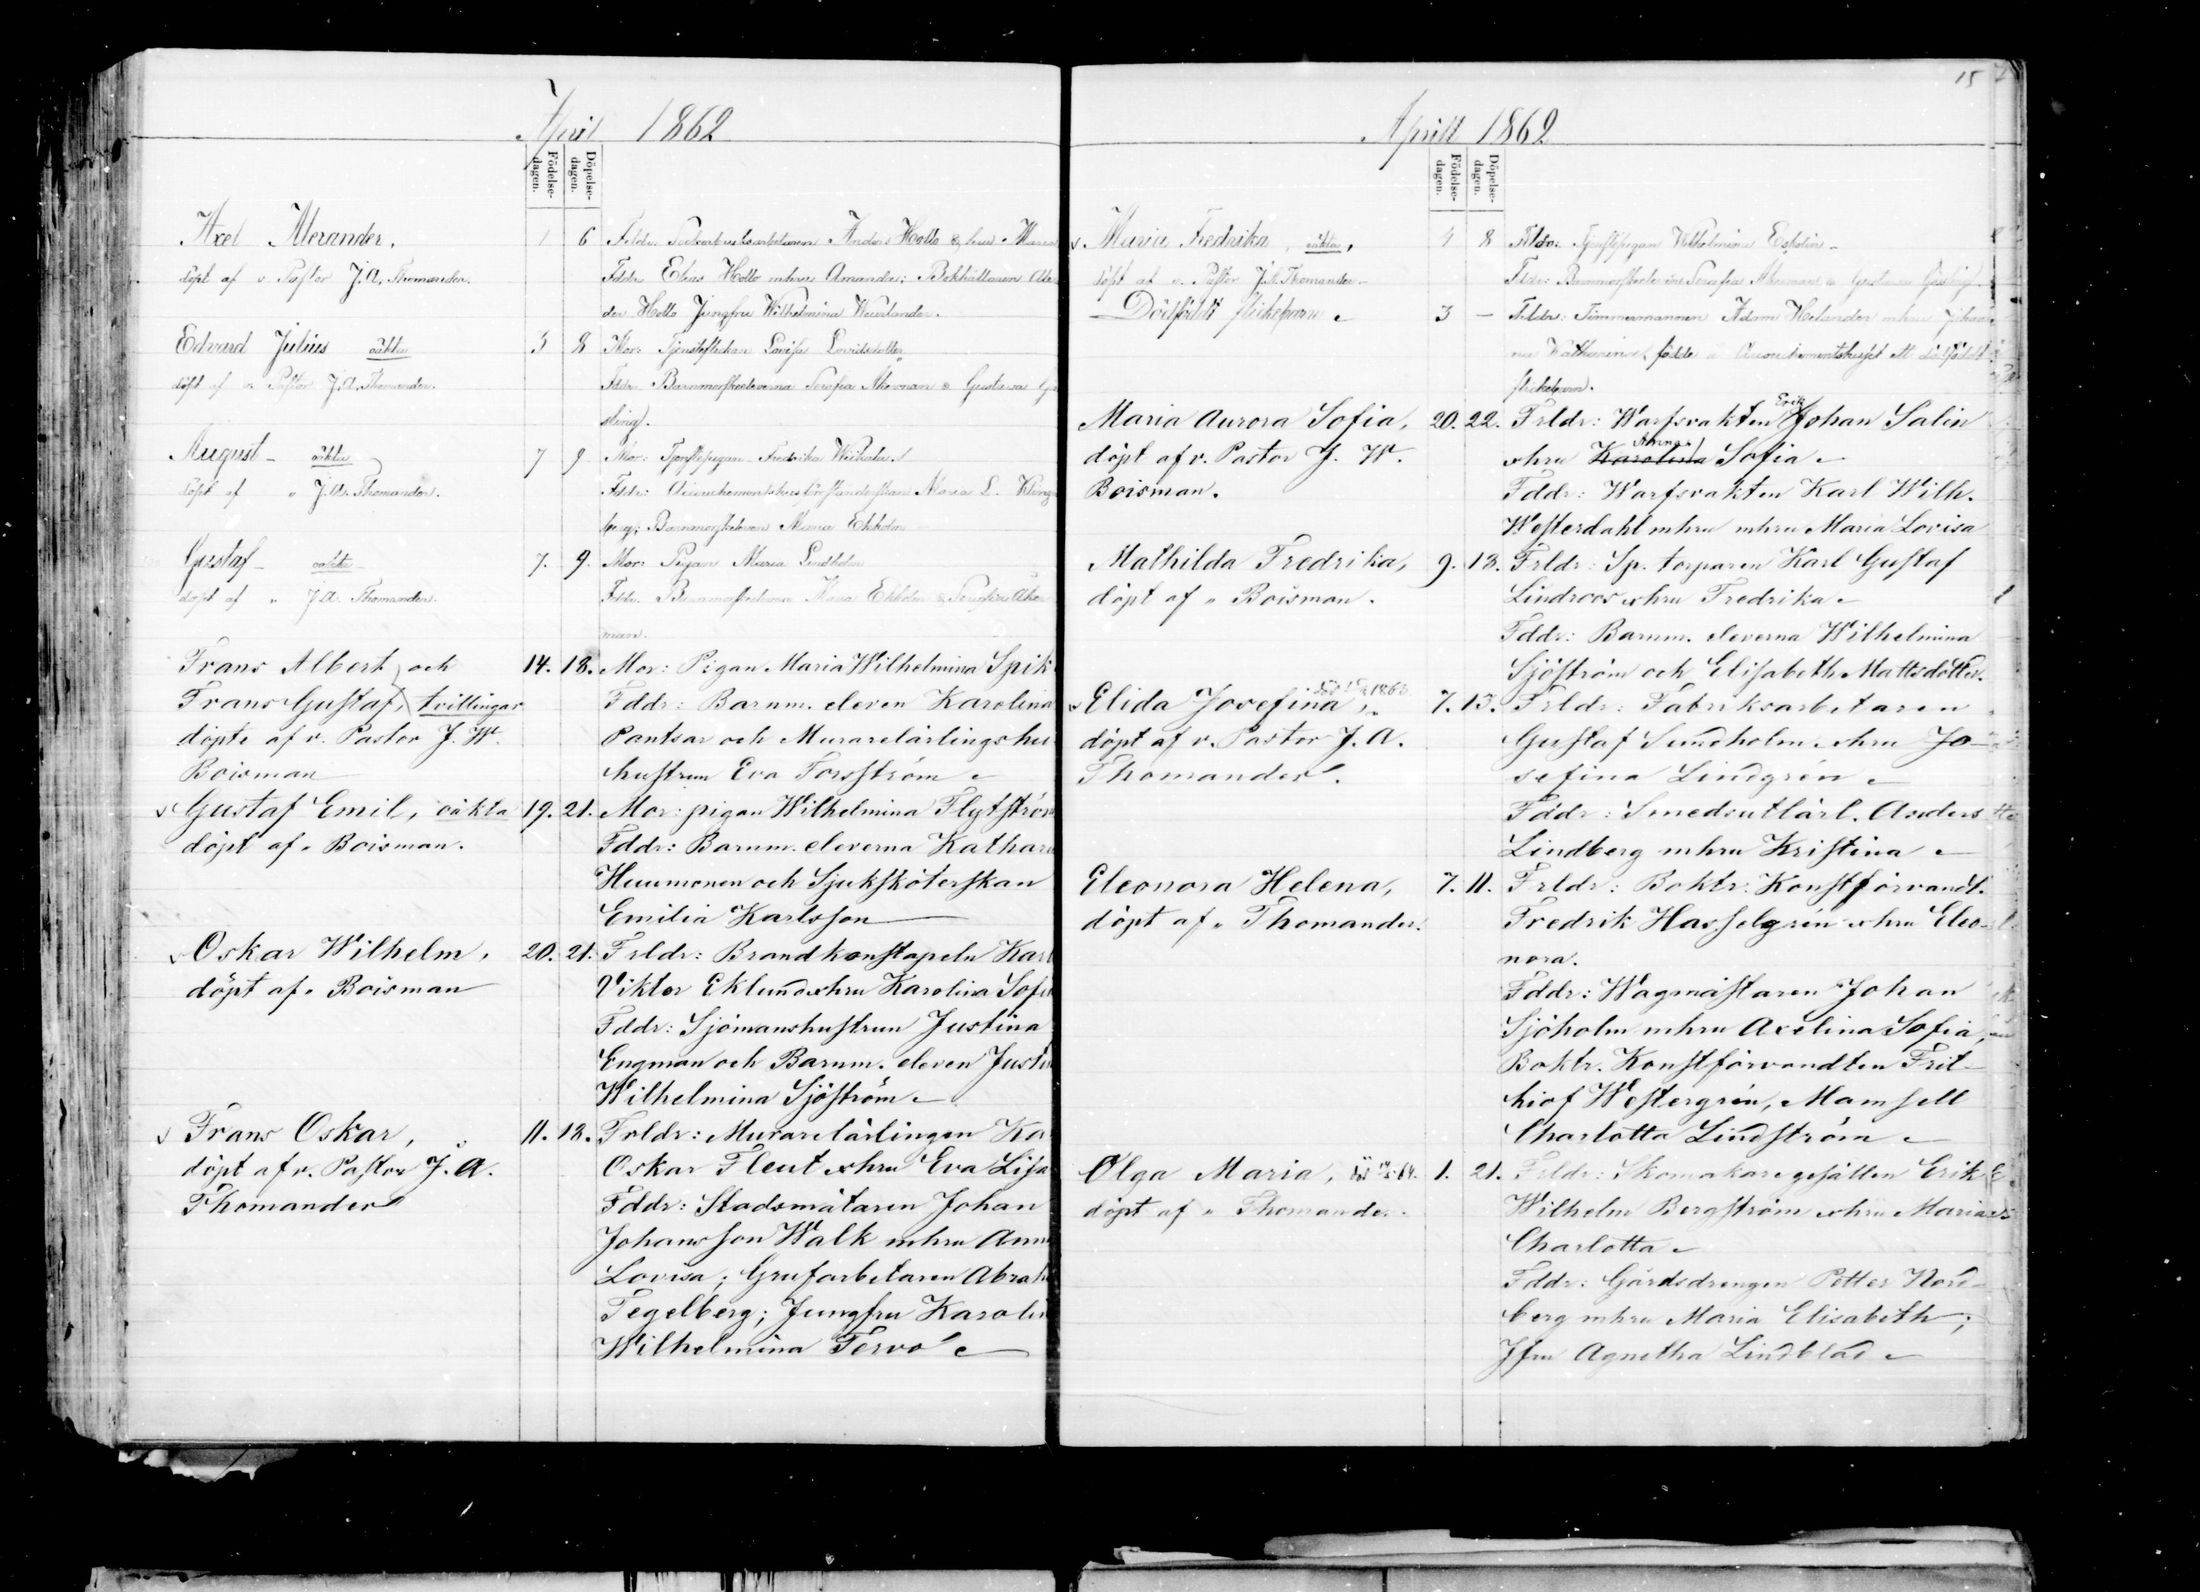 April 1862
Födelse-
dagen.
Döpelse-
dagen.
Axel Alexander,
döpt af v. Pastor J. A. Thomander.
1 6
Anders Hollo
Fddr. Elias Hollo mhru Amanda; Bokhållaren Alex
der Hollo Jungfru Wilhelmina
Edvard Julius oäkta
döpt af v. Pastor J. A. Thomander.
3 8
Mor: Lovisa
Fddr. Barnmorskeleverna Serafia Akerman & Gustava
sling.
August oäkta
döpt af " J. A. Thomander.
7 9
Mor: Fredrika
Fddr: Maria L. Kling
berg; Barnmorskeleven Maria Ekholm
Gustaf oäkta
döpt af " J. A. Thomander.
7. 9.
Mor: Pigan Maria Lindholm
Fddr. Maria Ekholm & Serafia Åker
man.
Frans Albert och
Frans Gustaf, tvillingar
döpte af v. Pastor J. W.
Boisman
14. 18.
Mor: Pigan Maria Wilhelmina Spik
Fddr: Barnm. eleven Karolina
Pantsar och Murarelärlingshu
hustrun Eva Forsström
Gustaf Emil, oäkta
döpt af " Boisman.
19. 21.
Mor: pigan Wilhelmina Flytström
Fddr: Barnm. eleverna Kathari
Huumonen och Sjuksköterskan
Emilia Karlsson
Oskar Wilhelm,
döpt af " Boisman
20. 21.
Frldr: Brandkonstapeln Karl
Viktor Eklund o hru Karolina Sofi
Fddr: Sjömanshustrun Justina
Engman och Barnm. eleven Justi
Wilhelmina Sjöström
Frans Oskar,
döpt af v. Pastor J. A.
Thomander
11. 18.
Frldr: Murarelärlingen Ka
Oskar Flent o hru Eva Lisa
Fddr: Stadsmätaren Johan
Johansson Walk mhru Ann
Lovisa; Grufarbetaren Abrah
Tegelberg; Jungfru Karolin
Wilhelmina Tervo
15
Aprill 1862
Födelse-
dagen.
Döpelse-
dagen.
Maria Fredrika, oäkta,
döpt af v. Pastor J. A. Thomander
4 8
Wilhelmina
Fddr: Serafia Akerman & Gustava
Dödfödt flickebarn
3 —
Frldr: Timmermannen Adam Helander mhru Johan
na Katharina, födde å Accouchementshuset ett dödfödt
flickebarn.
Maria Aurora Sofia,
döpt af v. Pastor J. W.
Boisman.
20. 22.
Frldr: Warfsvakten Erik Johan Salin
o hru Karolina Anna Sofia
Fddr: Warfsvakten Karl Wilh.
Westerdahl mhru mhru Maria Lovisa
Mathilda Fredrika,
döpt af " Boisman.
9. 13.
Frldr: Sp. torparen Karl Gustaf
Lindroos o hru Fredrika
Fddr: Barnm. eleverna Wilhelmina
Sjöström och Elisabeth Mattsdotter.
Elida Josefina, död 1863.
döpt af v. Pastor J. A.
Thomander.
7. 13.
Frldr: Fabriksarbetaren
Gustaf Sundholm o hru Jo-
sefina Lindgrén
Fddr: Smedsutlärl. Anders
Lindberg mhru Kristina
Eleonora Helena,
döpt af " Thomander.
7. 11.
Frldr: Boktr. Konstförvandt.
Fredrik Hasselgrén o hru Eleo-
nora.
Fddr: Wagmästaren Johan
Sjöholm mhru Axelina Sofia,
Boktr. Konstförvandten Frit-
hiof Westergrén, Mamsell
Charlotta Lindström
Olga Maria, död 64.
döpt af " Thomander.
1. 21.
Frldr: Skomakaregesällen Erik
Wilhelm Bergström o hru Maria
Charlotta
Fddr: Gårdsdrengen Petter Nord-
berg mhru Maria Elisabeth;
Jfru Agnetha Lindblad